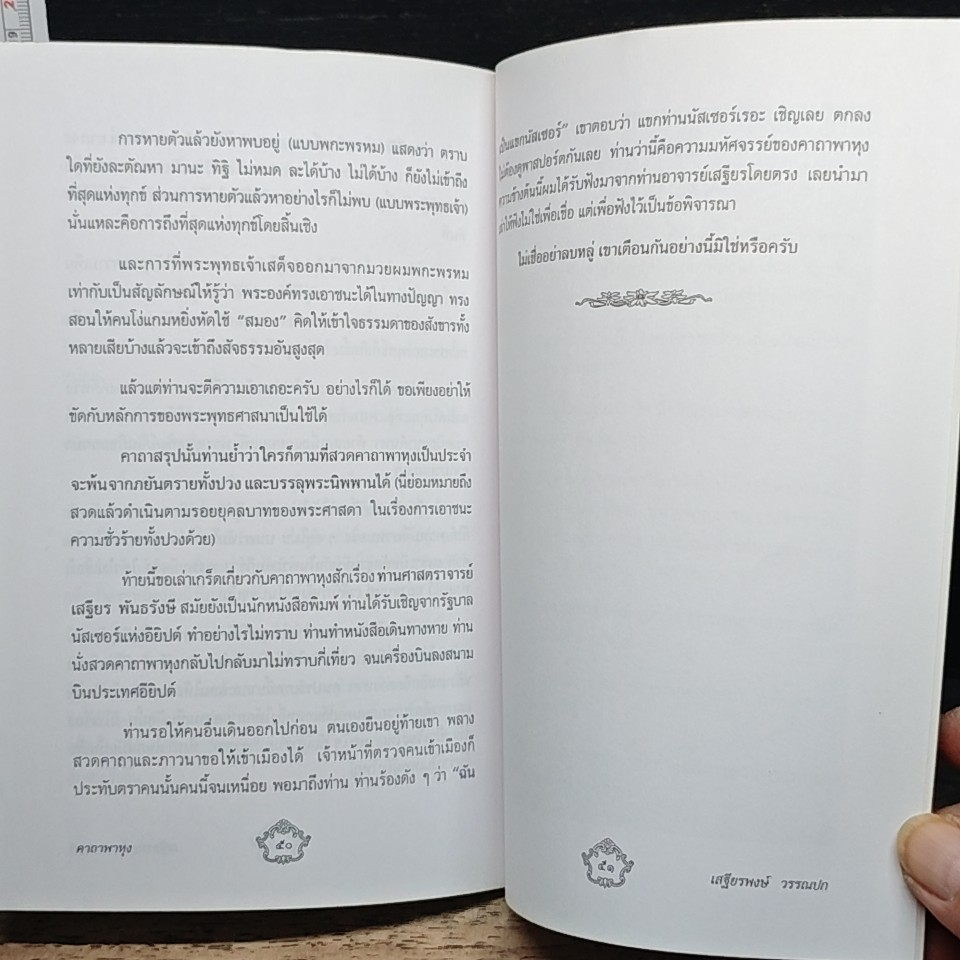 การหายตัวแล้วยังหาพบอยู่ (แบบพกะพรหม) แสดงว่า ตราบ
ใดที่ยังละตัณหา มานะ ทิฐิ ไม่หมด ละได้บ้าง ไม่ได้บ้าง ก็ยังไม่เข้าถึง
ที่สุดแห่งทุกข์ ส่วนการหายตัวแล้วหาอย่างไรก็ไม่พบ (แบบพระพุทธเจ้า)
นั่นแหละคือการถึงที่สุดแห่งทุกข์โดยสิ้นเชิง
และการที่พระพุทธเจ้าเสด็จออกมาจากมวยผมพกะพรหม
เท่ากับเป็นสัญลักษณ์ให้รู้ว่า พระองค์ทรงเอาชนะได้ในทางปัญญา ทรง
สอนให้คนโง่แกมหยิ่งหัดใช้ "สมอง" คิดให้เข้าใจธรรมดาของสังขารทั้ง
หลายเสียบ้างแล้วจะเข้าถึงสัจธรรมอันสูงสุด
แล้วแต่ท่านจะตีความเอาเถอะครับ อย่างไรก็ได้ ขอเพียงอย่าให้
ขัดกับหลักการของพระพุทธศาสนาเป็นใช้ได้
คาถาสรุปนั้นท่านย้ำว่าใครก็ตามที่สวดคาถาพาหุงเป็นประจำ
จะพ้นจากภยันตรายทั้งปวง และบรรลุพระนิพพานได้ (นี่ย่อมหมายถึง
สวดแล้วดำเนินตามรอยยุคลบาทของพระศาสดา ในเรื่องการเอาชนะ
ความชั่วร้ายทั้งปวงด้วย)
ท้ายนี้ขอเล่าเกร็ดเกี่ยวกับคาถาพาหุงสักเรื่อง ท่านศาสตราจารย์
เสฐียร พันธรังษี สมัยยังเป็นนักหนังสือพิมพ์ ท่านได้รับเชิญจากรัฐบาล
นัสเซอร์แห่งอียิปต์ ทำอย่างไรไม่ทราบ ท่านทำหนังสือเดินทางหาย ท่าน
นั่งสวดคาถาพาหุงกลับไปกลับมาไม่ทราบกี่เที่ยว จนเครื่องบินลงสนาม
บินประเทศอียิปต์
ท่านรอให้คนอื่นเดินออกไปก่อน ตนเองยืนอยู่ท้ายเขา พลาง
สวดคาถาและภาวนาขอให้เข้าเมืองได้ เจ้าหน้าที่ตรวจคนเข้าเมืองก็
ประทับตราคนนั้นคนนี้จนเหนื่อย พอมาถึงท่าน ท่านร้องดัง ๆ ว่า "ฉัน
คาถาพาหุง
๕๐
เป็นแขกนัสเซอร์" เขาตอบว่า แขกท่านนัสเซอร์เรอะ เชิญเลย ตกลง
ไม่ต้องดูพาสปอร์ตกันเลย ท่านว่านี้คือความมหัศจรรย์ของคาถาพาหุง
ความข้างต้นนี้ผมได้รับฟังมาจากท่านอาจารย์เสฐียรโดยตรง เลยนำมา
เล่าให้ฟังไม่ใช่เพื่อเชื่อ แต่เพื่อฟังไว้เป็นข้อพิจารณา
ไม่เชื่ออย่าลบหลู่ เขาเตือนกันอย่างนี้มิใช่หรือครับ
๕๑
เสฐียรพงษ์ วรรณปก